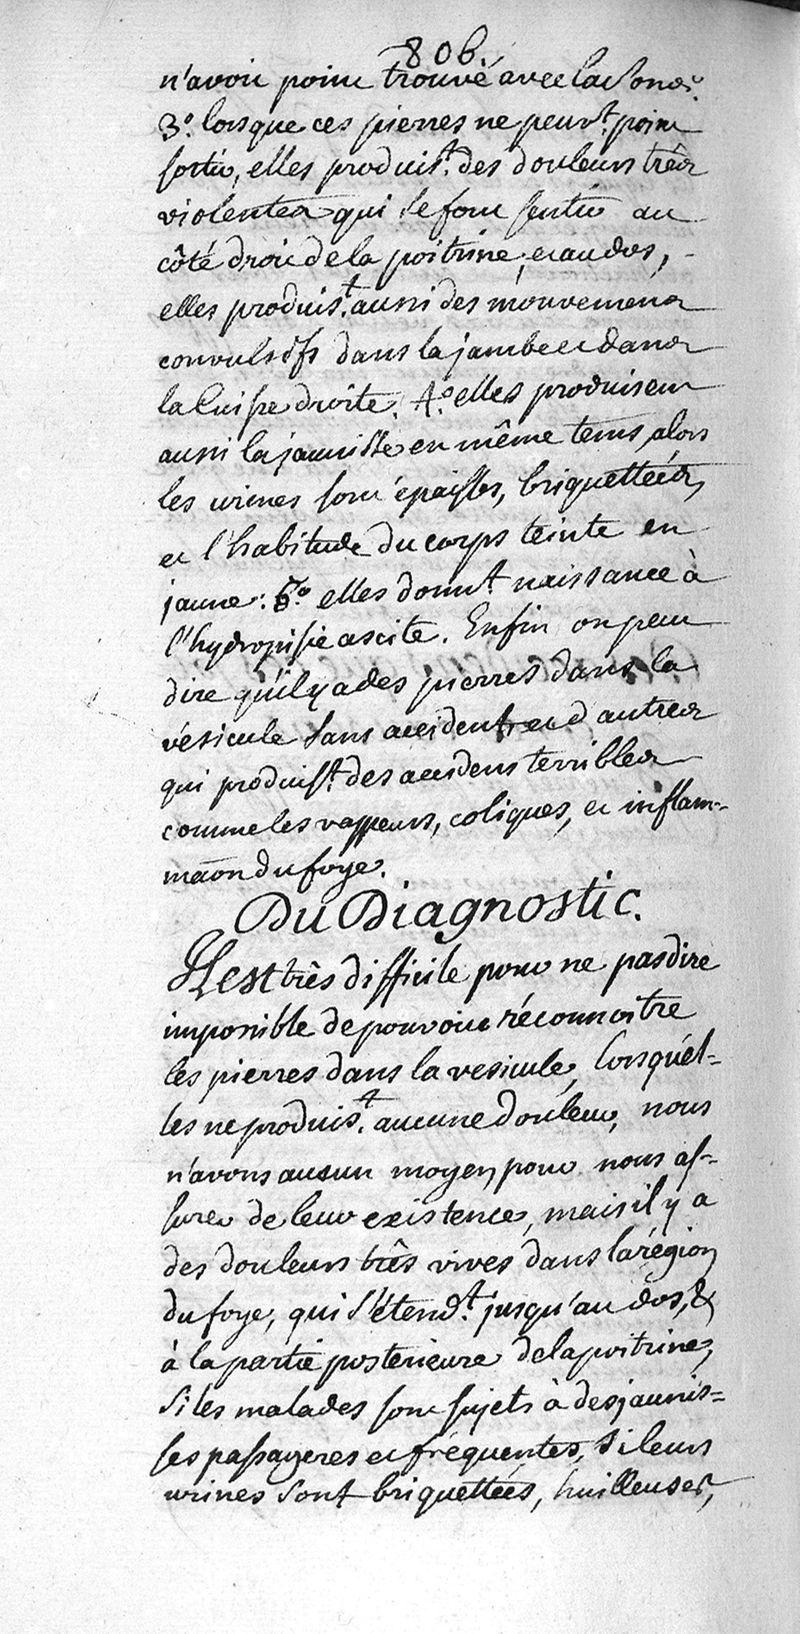 806.
n'avoir point trouvé avec la sonde.
3.° lorsque ces pierres ne peuv.t point
sortir, elles produis.t des douleurs três
violentes qui se font sentir au
côté droit de la poitrine, et au dos,
elles produis.t aussi des mouvemens
convulsifs dans la jambe et dans
la Cuisse droite. 4.° elles produisent
aussi la jaunisse en même tems, alors
les urines sont épaisses, briquettées,
et l'habitude du corps teinte en
jaune : 5.° elles donn.t naissance à
l'hydropisie ascite. Enfin on peut
dire qu'il y a des pierres dans la
vésicule sans accident, et d'autres
qui produis.t des accidens terribles
comme les vappeurs, coliques, et inflam-
maõn du foye.
Du Diagnostic.
Il est très difficile pour ne pas dire
impossible de pouvoir réconnoître
les pierres dans la vesicule, lorsquel-
les ne produis.t aucune douleur, nous
n'avons aucun moyen pour nous as-
surer de leur existence, mais il y a
des douleurs três vives dans la région
du foye, qui s'étend.t jusqu'au dos, &
à la partie posterieure de la poitrine,
Si les malades sont sujets à des jaunis-
ses passageres et fréquentes, si leurs
urines sont briquettées, huilleuses,